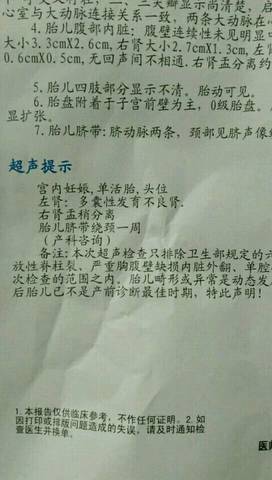 三尖瓣显示尚清楚。
心室与大动脉连接关系一致，两条大动脉在
4. 胎儿腹部内脏：腹壁连续性未见明显中
大小3.3cmX2.6cm，右肾大小2.7cmX1.3cm，左肾
0.6cmX0.5cm，无回声间不相通。右肾盂分离约
5. 胎儿四肢部分显示不清。胎动可见。
6. 胎盘附着于子宫前壁为主，0级胎盘。
显扩张。
7. 胎儿脐带：脐动脉两条，颈部见脐带声像
超声提示
宫内妊娠，单活胎，头位
左肾：多囊性发育不良肾。
右肾盂稍分离
胎儿脐带绕颈一周
（产科咨询）
备注：本次超声检查只排除卫生部规定的六
放性脊柱裂、严重胸腹壁缺损内脏外翻、单腔
次检查的范围之内。胎儿畸形或异常是动态发
后胎儿已不是产前诊断最佳时期，特此声明！
1. 本报告仅供临床参考，不作任何证明。2. 如
因打印或排版问题造成的失误，请及时通知检
查医生并换单。
医师